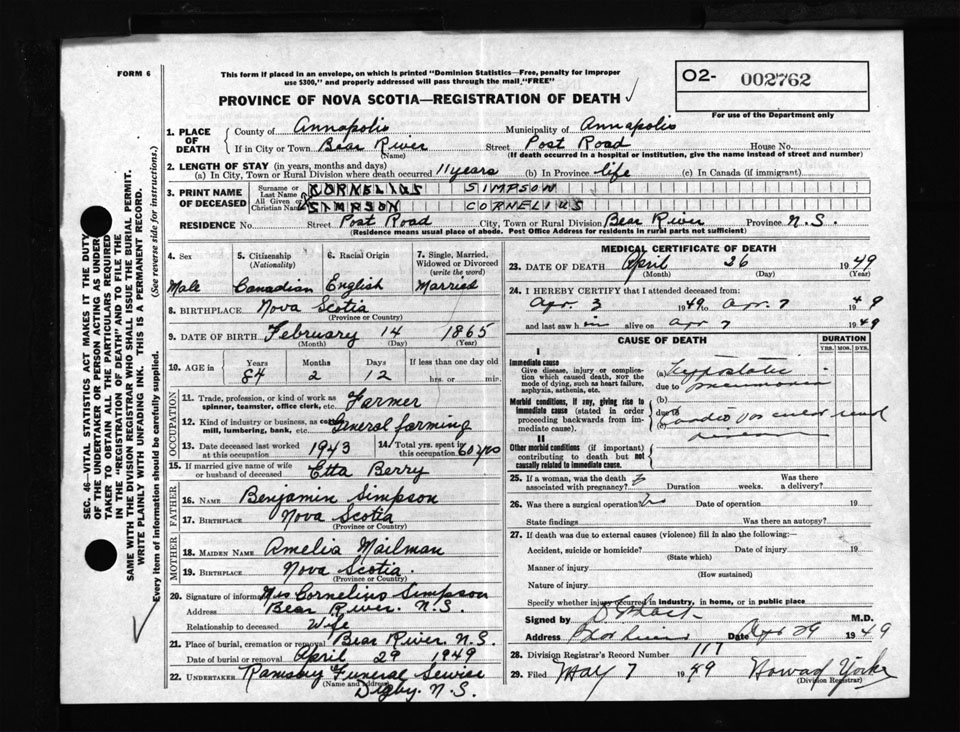 FORM 6
This form if placed in an envelope, on which is printed "Dominion Statistics—Free, penalty for improper
use $300," and properly addressed will pass through the mail "FREE"
O2- 002762
For use of the Department only
PROVINCE OF NOVA SCOTIA—REGISTRATION OF DEATH
1. PLACE OF DEATH
County of Annapolis Municipality of Annapolis
If in City or Town Bear River (Name) Street Post Road House No.
(If death occurred in a hospital or institution, give the name instead of street and number)
2. LENGTH OF STAY (in years, months and days)
(a) In City, Town or Rural Division where death occurred 11 years (b) In Province life (c) In Canada (if immigrant)
3. PRINT NAME OF DECEASED
Surname or Last Name CORNELIUS SIMPSON
All Given or Christian Names SIMPSON CORNELIUS
RESIDENCE No. Street Post Road City, Town or Rural Division Bear River Province N.S.
(Residence means usual place of abode. Post Office Address for residents in rural parts not sufficient)
4. Sex Male
5. Citizenship (Nationality) Canadian
6. Racial Origin English
7. Single, Married, Widowed or Divorced (write the word) Married
8. BIRTHPLACE Nova Scotia
(Province or Country)
9. DATE OF BIRTH February 14 1865
(Month) (Day) (Year)
10. AGE in Years 84 Months 2 Days 12 If less than one day old hrs. or min.
OCCUPATION
11. Trade, profession, or kind of work as spinner, teamster, office clerk, etc. Farmer
12. Kind of industry or business, as cotton mill, lumbering, bank, etc. General farming
13. Date deceased last worked at this occupation 1943
14. Total yrs. spent in this occupation 60 yrs
15. If married give name of wife or husband of deceased Etta Berry
FATHER
16. NAME Benjamin Simpson
17. BIRTHPLACE Nova Scotia
(Province or Country)
MOTHER
18. MAIDEN NAME Amelia Mailman
19. BIRTHPLACE Nova Scotia.
(Province or Country)
20. Signature of informant Mrs Cornelius Simpson
Address Bear River. N.S.
Relationship to deceased Wife
21. Place of burial, cremation or removal Bear River, N.S.
Date of burial or removal April 29 1949
22. UNDERTAKER Ramsbury Funeral Service
(Name and Address) Digby. N.S.
MEDICAL CERTIFICATE OF DEATH
23. DATE OF DEATH April 26 1949
(Month) (Day) (Year)
24. I HEREBY CERTIFY that I attended deceased from:
Apr. 3 1949, to Apr. 7 1949
and last saw him alive on Apr 7 1949
CAUSE OF DEATH
DURATION
YRS. MOS. DYS.
I
Immediate cause
Give disease, injury or complication which caused death, NOT the mode of dying, such as heart failure, asphyxia, asthenia, etc.
(a) Hypostatic
due to pneumonia
Morbid conditions, if any, giving rise to immediate cause (stated in order proceeding backwards from immediate cause).
(b)
due to Cardio vascular renal
(c) disease
II
Other morbid conditions (if important) contributing to death but not causally related to immediate cause.
25. If a woman, was the death associated with pregnancy? Duration weeks. Was there a delivery?
26. Was there a surgical operation? No Date of operation 19
State findings Was there an autopsy?
27. If death was due to external causes (violence) fill in also the following:
Accident, suicide or homicide? Date of injury 19
(State which)
Manner of injury
(How sustained)
Nature of injury
Specify whether injury occurred in industry, in home, or in public place
Signed by M.D.
Address Bear River Date Apr 29 1949
28. Division Registrar's Record Number 117
29. Filed May 7 1949 Howard Yorke
(Division Registrar)
SEC. 46—VITAL STATISTICS ACT MAKES IT THE DUTY
OF THE UNDERTAKER OR PERSON ACTING AS UNDER-
TAKER TO OBTAIN ALL THE PARTICULARS REQUIRED
IN THE "REGISTRATION OF DEATH" AND TO FILE THE
SAME WITH THE DIVISION REGISTRAR WHO SHALL ISSUE THE BURIAL PERMIT.
WRITE PLAINLY WITH UNFADING INK. THIS IS A PERMANENT RECORD.
Every item of information should be carefully supplied. (See reverse side for instructions.)